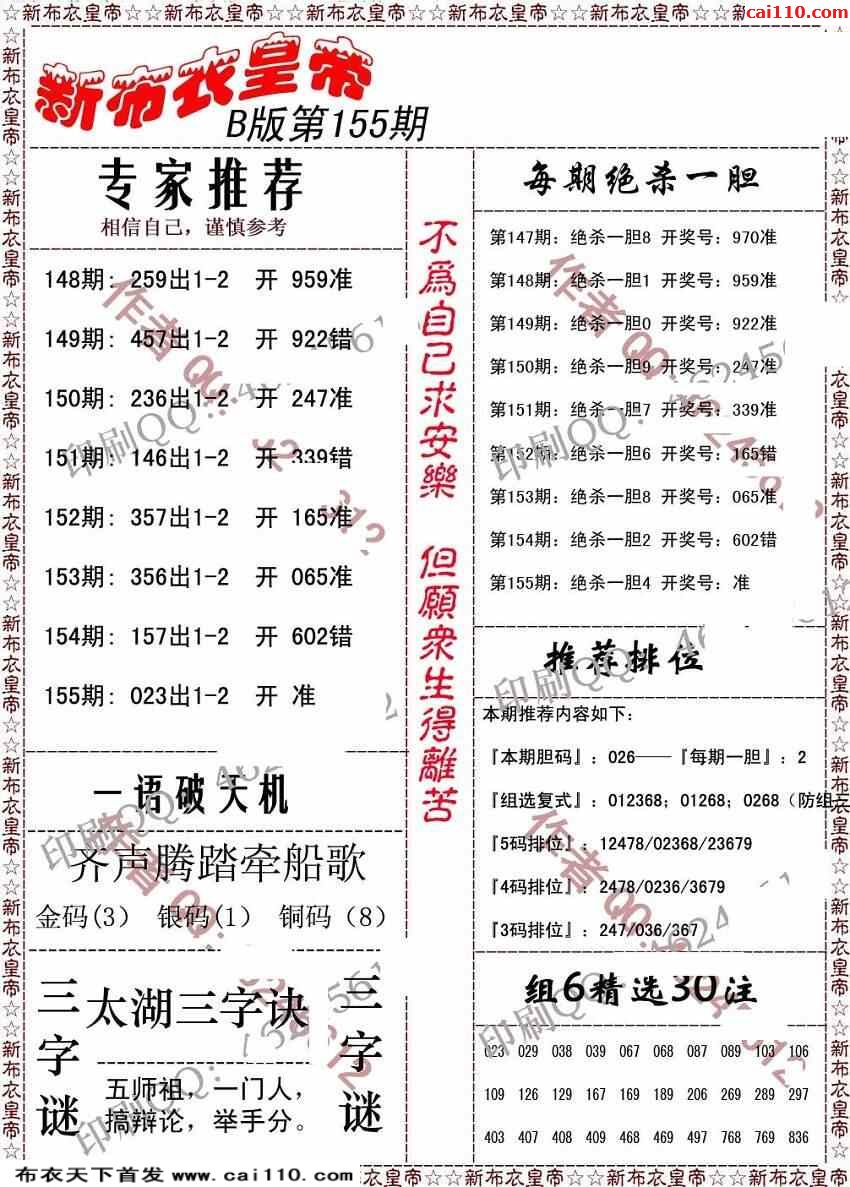 ☆☆新布衣皇帝☆☆新布衣皇帝☆☆新布衣皇帝☆☆新布衣皇帝☆☆新布衣皇帝☆☆
cai110.com
新布衣皇帝
B版第155期
专家推荐
相信自己，谨慎参考
148期: 259出1-2 开 959准
149期: 457出1-2 开 922错
150期: 236出1-2 开 247准
151期: 146出1-2 开 339错
152期: 357出1-2 开 165准
153期: 356出1-2 开 065准
154期: 157出1-2 开 602错
155期: 023出1-2 开 准
一语破天机
齐声腾踏牵船歌
金码(3) 银码(1) 铜码（8）
三字谜
太湖三字诀
五师祖，一门人，
搞辩论，举手分。
三字谜
不為自己求安樂
但願衆生得離苦
每期绝杀一胆
第147期: 绝杀一胆8 开奖号: 970准
第148期: 绝杀一胆1 开奖号: 959准
第149期: 绝杀一胆0 开奖号: 922准
第150期: 绝杀一胆9 开奖号: 247准
第151期: 绝杀一胆7 开奖号: 339准
第152期: 绝杀一胆6 开奖号: 165错
第153期: 绝杀一胆8 开奖号: 065准
第154期: 绝杀一胆2 开奖号: 602错
第155期: 绝杀一胆4 开奖号: 准
推荐排位
本期推荐内容如下:
『本期胆码』: 026——『每期一胆』: 2
『组选复式』: 012368; 01268; 0268（防组三
『5码排位』: 12478/02368/23679
『4码排位』: 2478/0236/3679
『3码排位』: 247/036/367
组6精选30注
023 029 038 039 067 068 087 089 103 106
109 126 129 167 169 189 206 269 289 297
403 407 408 409 468 469 497 768 769 836
布衣天下首发 www.cai110.com
衣皇帝☆☆新布衣皇帝☆☆新布衣皇帝☆☆新布衣皇帝☆☆